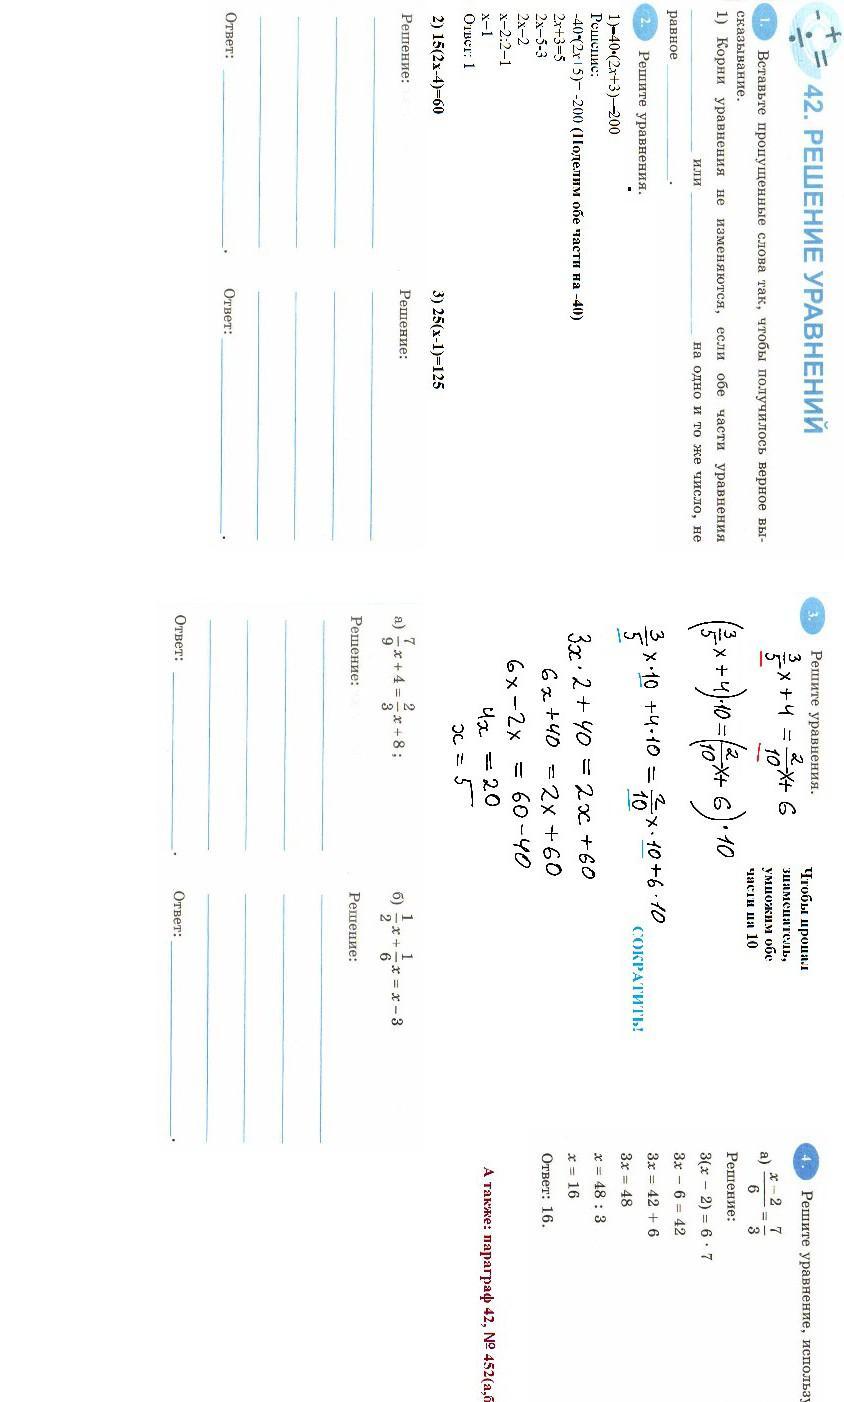 42. РЕШЕНИЕ УРАВНЕНИЙ
1. Вставьте пропущенные слова так, чтобы получилось верное вы-
сказывание.
1) Корни уравнения не изменяются, если обе части уравнения
или на одно и то же число, не
равное .
2. Решите уравнения.
1)-40•(2x+3)=-200
Решение:
-40•(2x+5)= -200 (Поделим обе части на -40)
2x+3=5
2x=5-3
2x=2
x=2:2=1
x=1
Ответ: 1
2) 15(2x-4)=60
Решение:
Ответ: .
3) 25(x-1)=125
Решение:
Ответ: .
3. Решите уравнения.
3/5 x + 4 = 2/10 x + 6
Чтобы пропал
знаменатель,
умножим обе
части на 10
(3/5 x + 4)·10 = (2/10 x + 6)·10
3/5 x·10 + 4·10 = 2/10 x·10 + 6·10
СОКРАТИТЬ!
3x·2 + 40 = 2x + 60
6x + 40 = 2x + 60
6x - 2x = 60 - 40
4x = 20
x = 5
а) 7/9 x + 4 = 2/3 x + 8;
Решение:
Ответ: .
б) 1/2 x + 1/6 x = x - 3
Решение:
Ответ: .
4. Решите уравнение, использу
а) x - 2/6 = 7/3
Решение:
3(x - 2) = 6 · 7
3x - 6 = 42
3x = 42 + 6
3x = 48
x = 48 : 3
x = 16
Ответ: 16.
А также: параграф 42, № 452(а,б